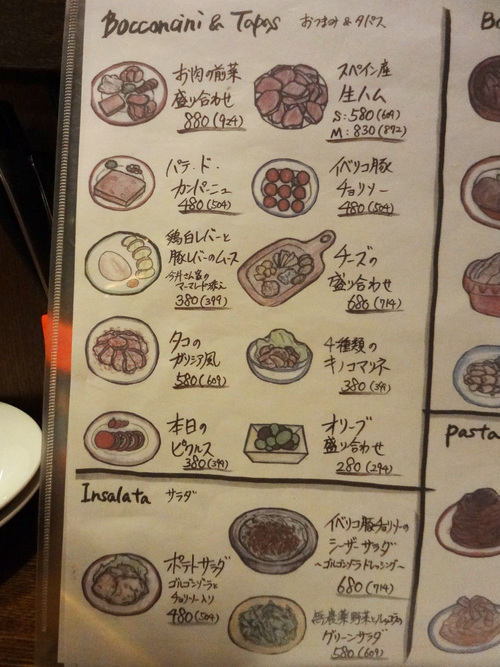 Bocconcini & Tapas おつまみ & タパス
お肉の前菜
盛り合わせ
880(924)
スペイン産
生ハム
S:580(609)
M:830(872)
パテ・ド・
カンパーニュ
480(504)
イベリコ豚
チョリソー
480(504)
鶏白レバーと
豚レバーのムース
マーマレード添え
380(399)
チーズの
盛り合わせ
680(714)
タコの
ガリシア風
580(609)
4種類の
キノコマリネ
380(399)
本日の
ピクルス
380(399)
オリーブ
盛り合わせ
280(294)
Insalata サラダ
ポテトサラダ
ゴルゴンゾーラと
チョリソー入り
480(504)
イベリコ豚チョリソーの
シーザーサラダ
~ゴルゴンゾーラドレッシング~
680(714)
無農薬野菜と
グリーンサラダ
580(609)
Bo
pasta